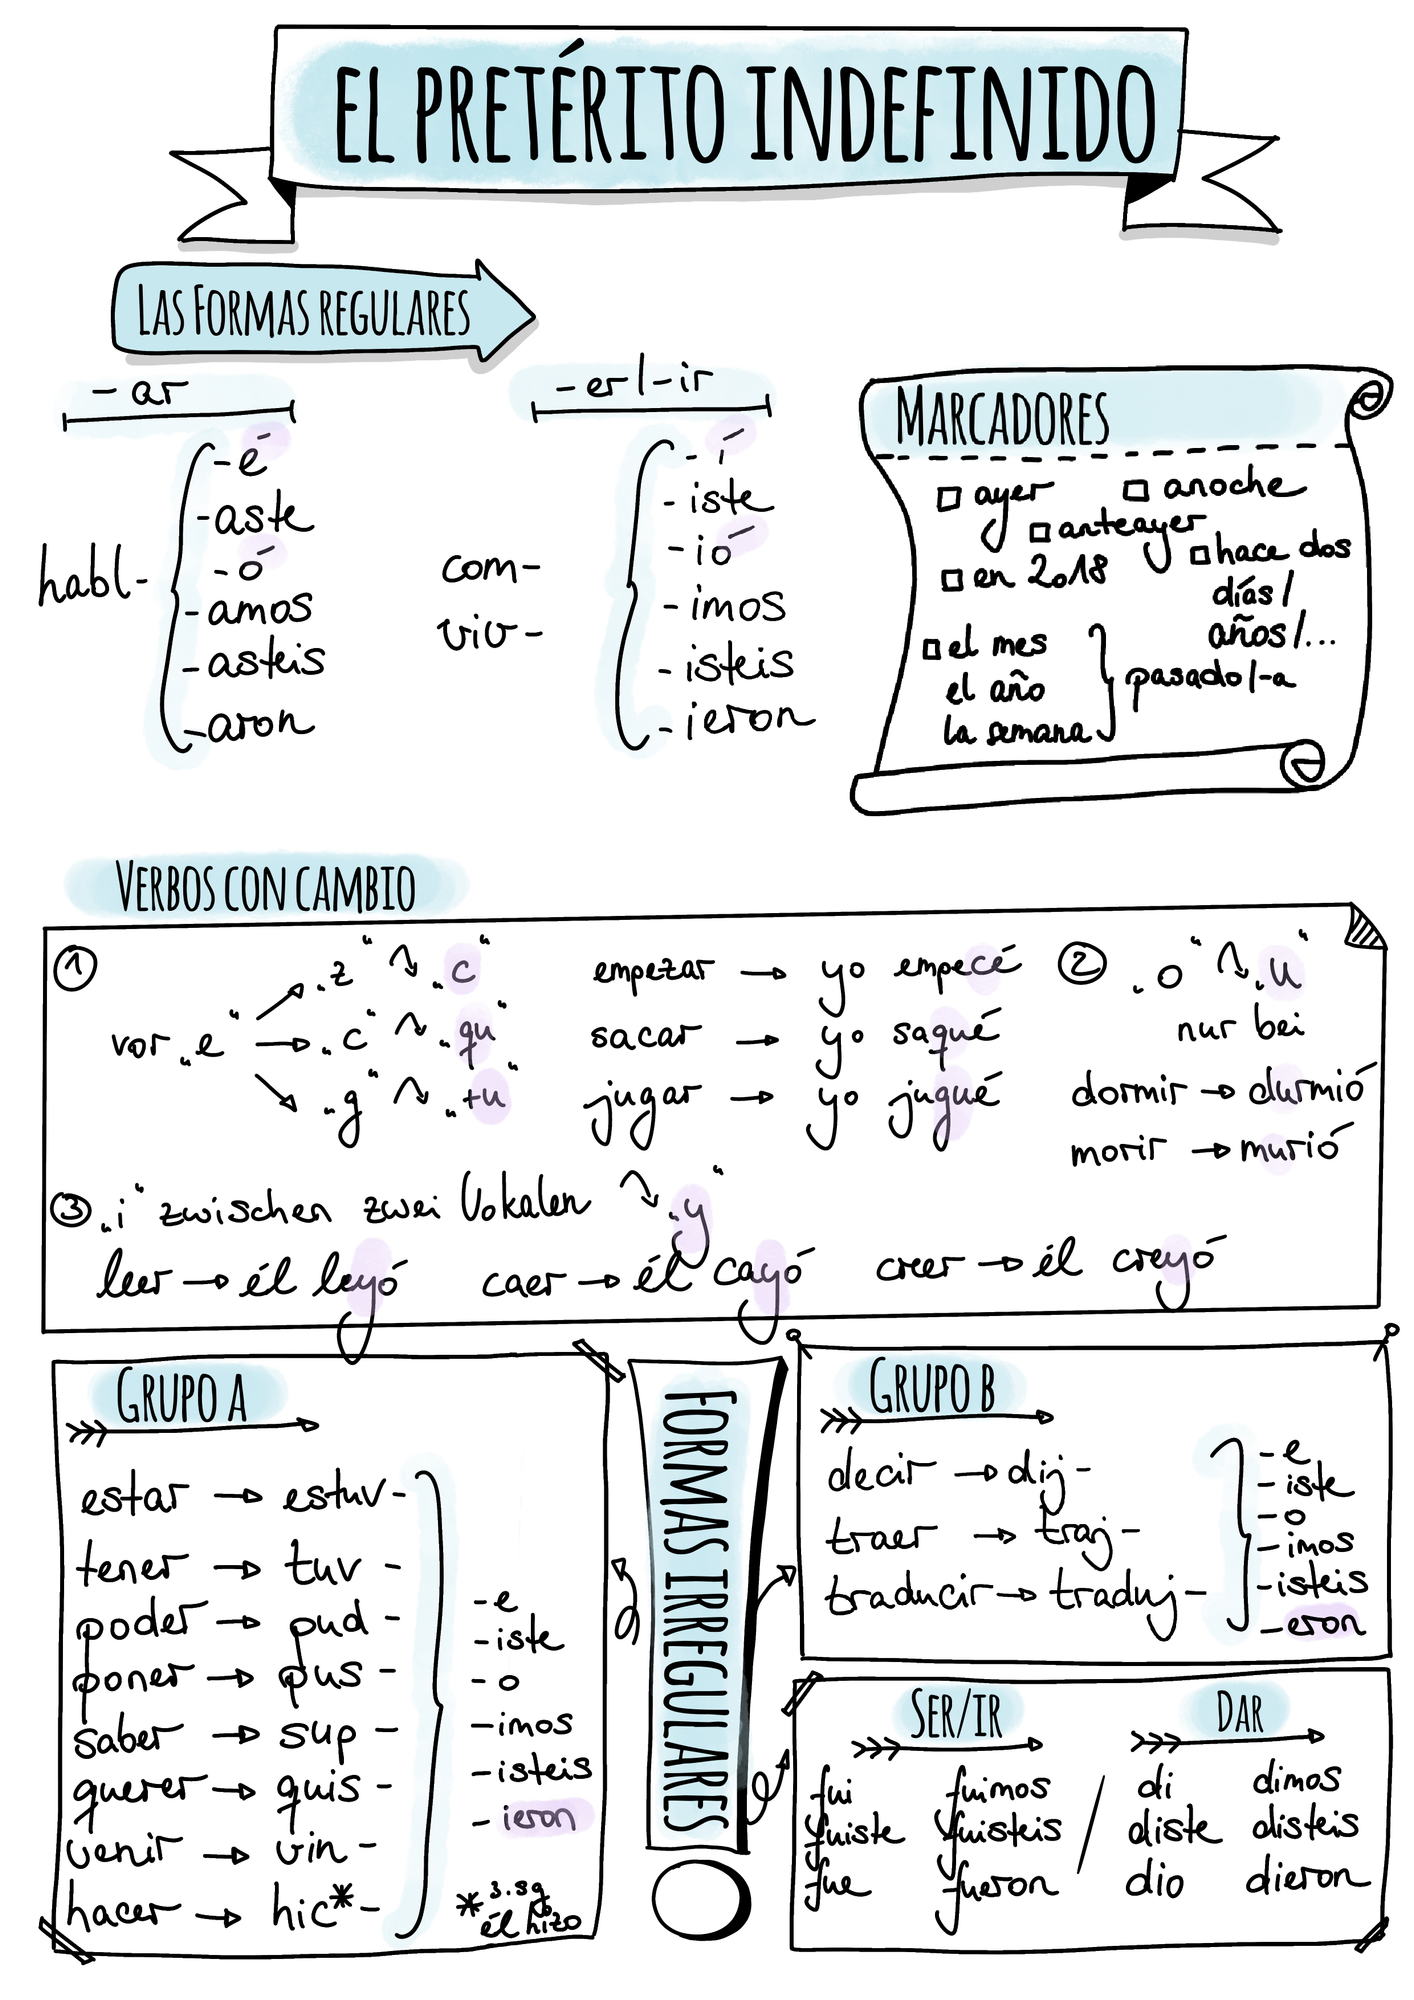 EL PRETÉRITO INDEFINIDO
LAS FORMAS REGULARES
-ar
habl-
-é
-aste
-ó
-amos
-asteis
-aron
-er/-ir
com-
viv-
-í
-iste
-ió
-imos
-isteis
-ieron
MARCADORES
ayer
anoche
anteayer
en 2018
hace dos
días/
años/...
el mes
el año
la semana
pasado/-a
VERBOS CON CAMBIO
1
vor „e“
„z“ „c“
„c“ „qu“
„g“ „+u“
empezar → yo empecé
sacar → yo saqué
jugar → yo jugué
2 „o“ „u“
nur bei
dormir → durmió
morir → murió
3 „i“ zwischen zwei Vokalen „y“
leer → él leyó caer → él cayó creer → él creyó
GRUPO A
estar → estuv-
tener → tuv-
poder → pud-
poner → pus-
saber → sup-
querer → quis-
venir → vin-
hacer → hic*-
-e
-iste
-o
-imos
-isteis
-ieron
* 3. sg
él hizo
FORMAS IRREGULARES
GRUPO B
decir → dij-
traer → traj-
traducir → traduj-
-e
-iste
-o
-imos
-isteis
-eron
SER/IR
fui fuimos
fuiste fuisteis
fue fueron
DAR
di dimos
diste disteis
dio dieron